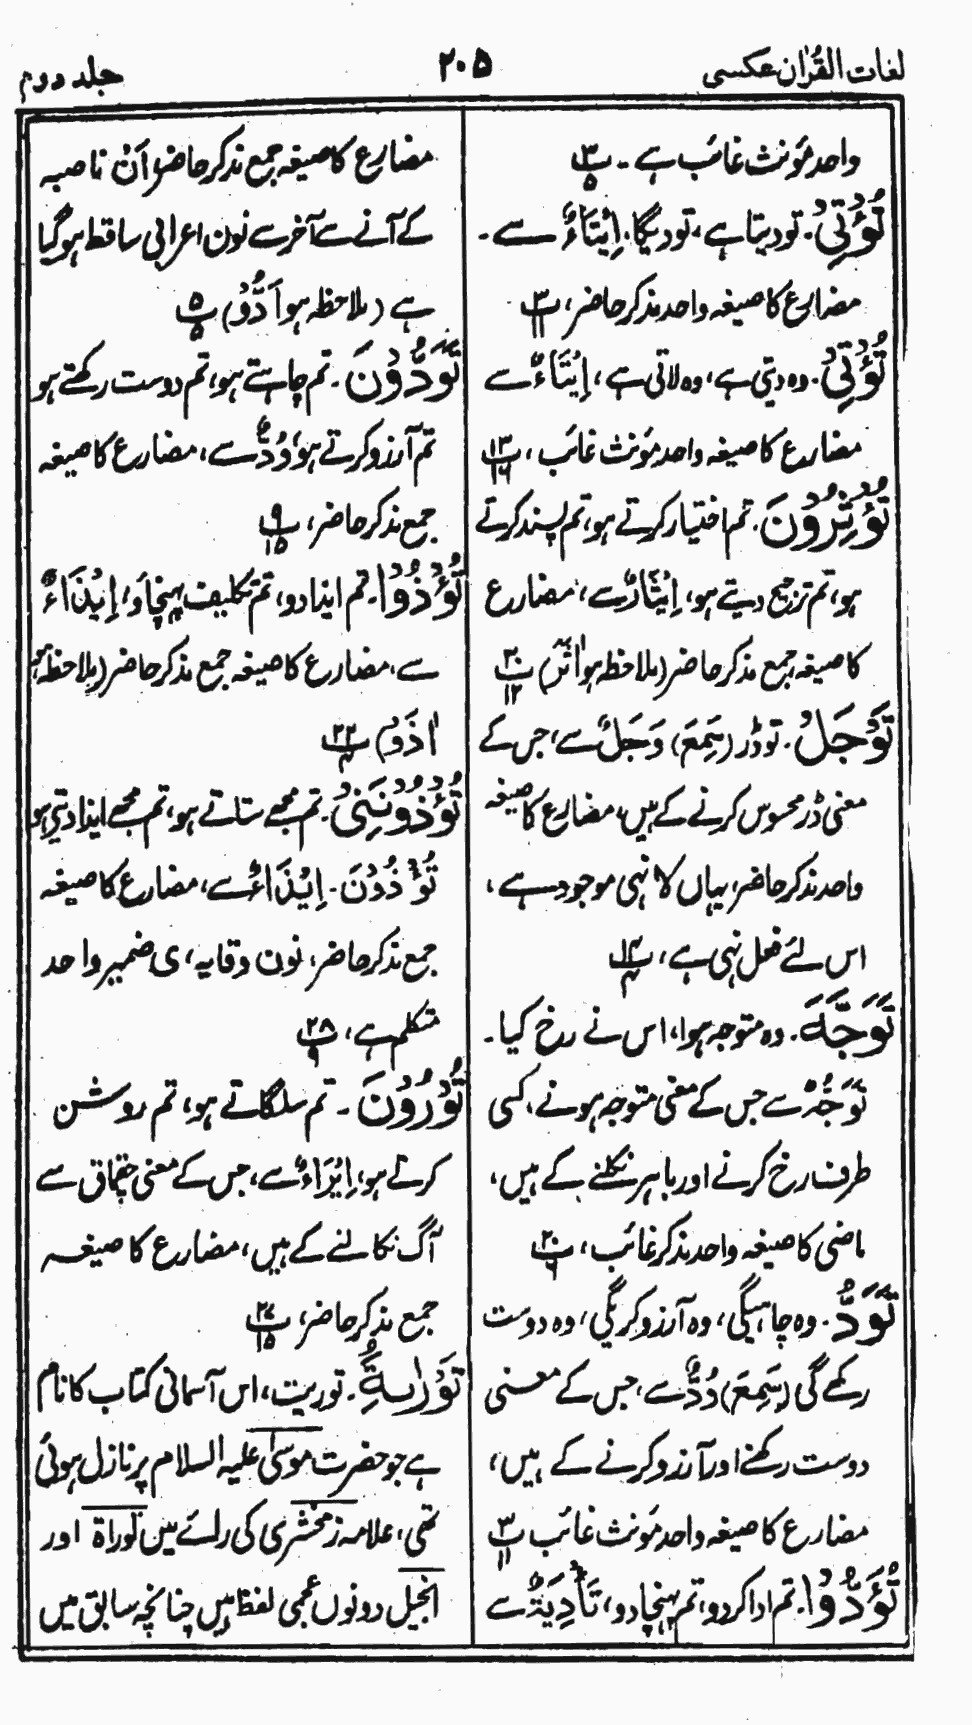 لغات القرآن عکسی
۲۰۵
جلد دوم
واحد مؤنث غائب ہے ۔ پ ۳ ۵
تُؤْتِیْ ۔ تو دیتا ہے، تو دیگا، اِیْتَاءٌ سے ۔
مضارع کا صیغہ واحد مذکر حاضر، پ ۳ ۱۱
تُؤْتِیْ ۔ وہ دیتی ہے، وہ لاتی ہے، اِیْتَاءٌ سے
مضارع کا صیغہ واحد مؤنث غائب، پ ۱۳ ۱۶
تُؤْثِرُوْنَ ۔ تم اختیار کرتے ہو، تم پسند کرتے
ہو، تم ترجیح دیتے ہو، اِیْثَارٌ سے، مضارع
کا صیغہ جمع مذکر حاضر (ملاحظہ ہو اٰثَرَ) پ ۳۰ ۱۲
تَوْجَلْ ۔ تو ڈر (سَمِعَ) وَجَلٌ سے، جس کے
معنی ڈر محسوس کرنے کے ہیں، مضارع کا صیغہ
واحد مذکر حاضر، یہاں لا نہی موجود ہے،
اس لئے فعل نہی ہے، پ ۱۴ ۴
تَوَجَّهَ ۔ وہ متوجہ ہوا، اس نے رخ کیا ۔
تَوَجُّهٌ سے جس کے معنی متوجہ ہونے، کسی
طرف رخ کرنے اور باہر نکلنے کے ہیں،
ماضی کا صیغہ واحد مذکر غائب، پ ۲۰ ۶
تَوَدُّ ۔ وہ چاہیگی، وہ آرزو کریگی، وہ دوست
رکھے گی (سَمِعَ) وُدٌّ سے، جس کے معنی
دوست رکھنے اور آرزو کرنے کے ہیں،
مضارع کا صیغہ واحد مؤنث غائب پ ۳ ۱۱
تُؤَدُّوْا ۔ تم ادا کردو، تم پہنچا دو، تَأْدِیَةٌ سے
مضارع کا صیغہ جمع مذکر حاضر، اَنْ ناصبہ
کے آنے سے آخر سے نون اعرابی ساقط ہو گیا
ہے (ملاحظہ ہو اَدُّوْ) پ ۵ ۵
تَوَدُّوْنَ ۔ تم چاہتے ہو، تم دوست رکھتے ہو
تم آرزو کرتے ہو، وُدٌّ سے، مضارع کا صیغہ
جمع مذکر حاضر، پ ۹ ۱۵
تُؤْذُوْا ۔ تم ایذا دو، تم تکلیف پہنچاؤ، اِیْذَاءٌ
سے، مضارع کا صیغہ جمع مذکر حاضر (ملاحظہ ہو
اٰذَوْا) پ ۲۲ ۴
تُؤْذُوْنَنِیْ ۔ تم مجھے ستاتے ہو، تم مجھے ایذا دیتے ہو
تُؤْذُوْنَ ۔ اِیْذَاءٌ سے، مضارع کا صیغہ
جمع مذکر حاضر، نون وقایہ، ی ضمیر واحد
متکلم ہے، پ ۲۸ ۹
تُوْرُوْنَ ۔ تم سلگاتے ہو، تم روشن
کرتے ہو، اِیْرَاءٌ سے، جس کے معنی چقماق سے
آگ نکالنے کے ہیں، مضارع کا صیغہ
جمع مذکر حاضر، پ ۲۷ ۱۵
تَوْرٰىةِ ۔ توریت، اس آسمانی کتاب کا نام
ہے جو حضرت موسیٰ علیہ السلام پر نازل ہوئی
تھی، علامہ زمخشری کی رائے میں توراۃ اور
انجیل دونوں عجمی لفظ ہیں چنانچہ سابق میں